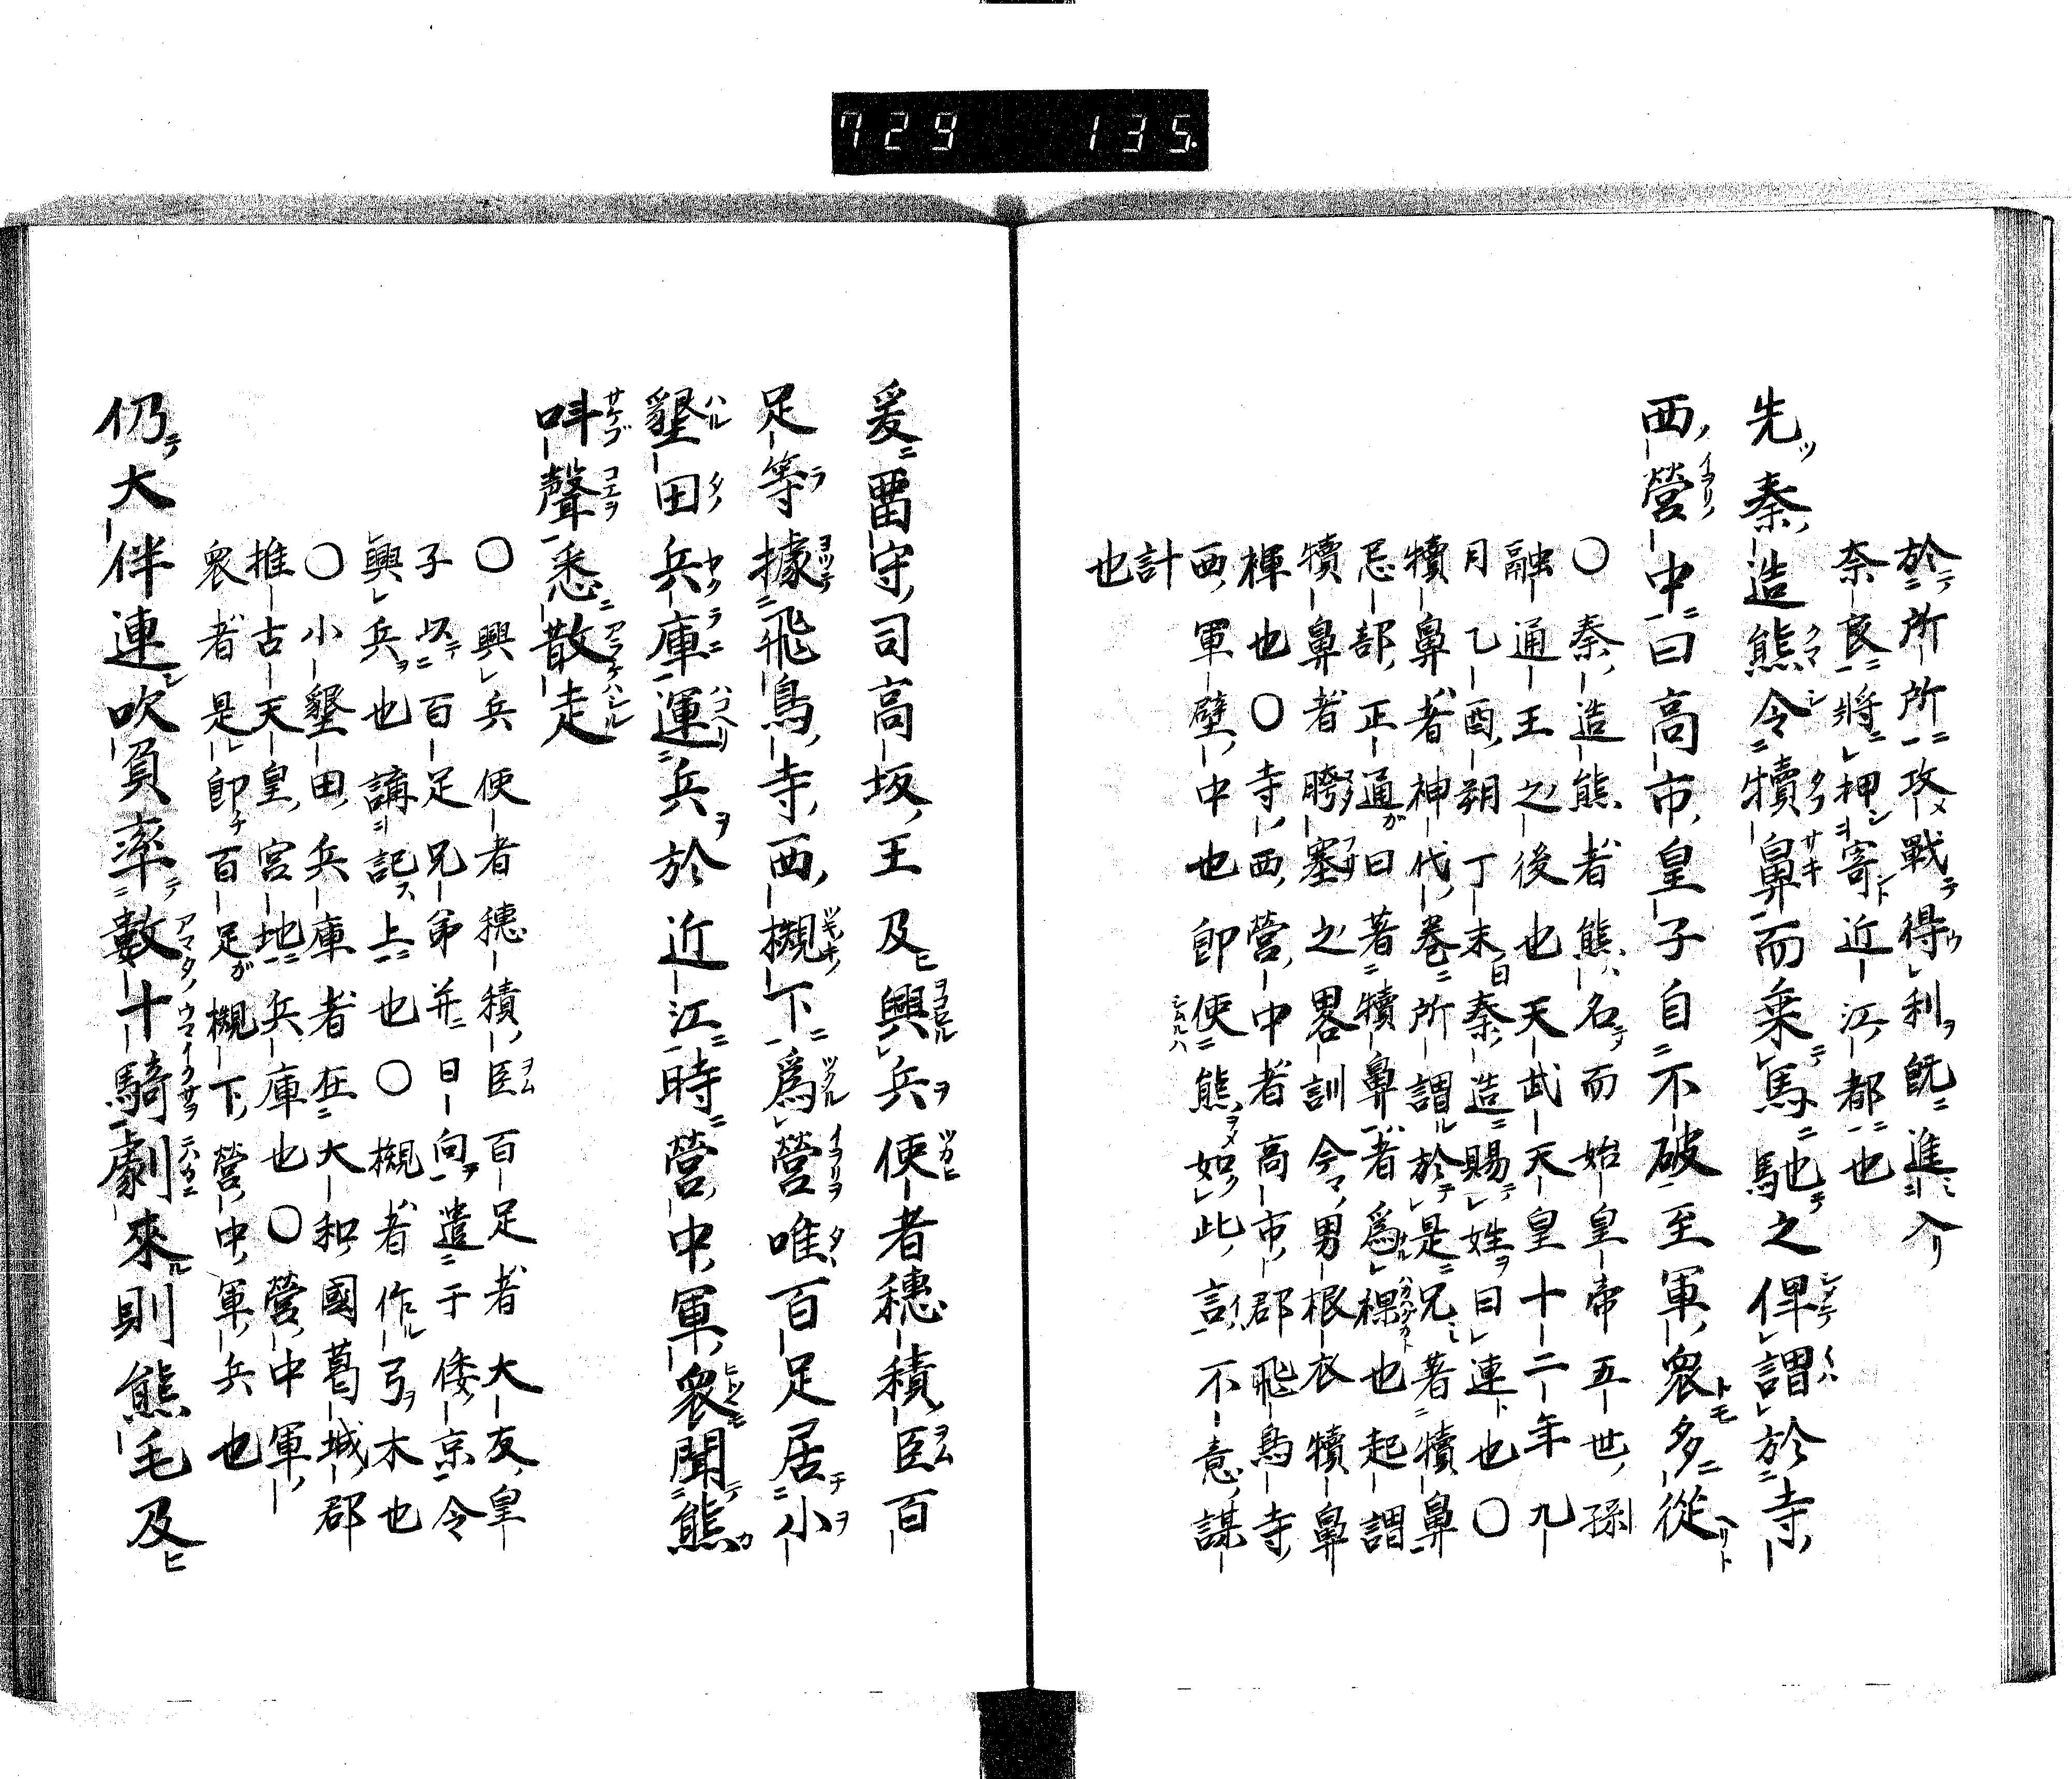 729 135.
於所所攻戰得利既進入
奈良將押寄近江都也
先秦造熊令犢鼻而乗馬馳之俾謂於寺
西營中曰高市皇子自不破至軍衆多從
〇秦造熊者熊名而始皇帝五世孫
融通王之後也天武天皇十二年九
月乙酉朔丁未日秦造賜姓曰連也〇
犢鼻者神代巻所謂於是兄著犢鼻
忌部正通曰著犢鼻者爲裸也起謂
犢鼻者膀塞之畧訓今男根衣犢鼻
褌也〇寺西營中者高市郡飛鳥寺
西軍壁中也卽使熊如此言不意謀
計
也
爰畱守司高坂王及興兵使者穗積臣百
足等據飛鳥寺西槻下爲營唯百足居小
墾田兵庫運兵於近江時營中軍衆聞熊
叫聲悉散走
〇興兵使者穗積臣百足者大友皇
子以百足兄弟并日向遣于倭京令
興兵也謫記上也〇槻者作弓木也
〇小墾田兵庫者在大和國葛城郡
推古天皇宮地兵庫也〇營中軍
衆者是卽百足槻下營中軍兵也
仍大伴連吹負率數十騎劇來則熊毛及